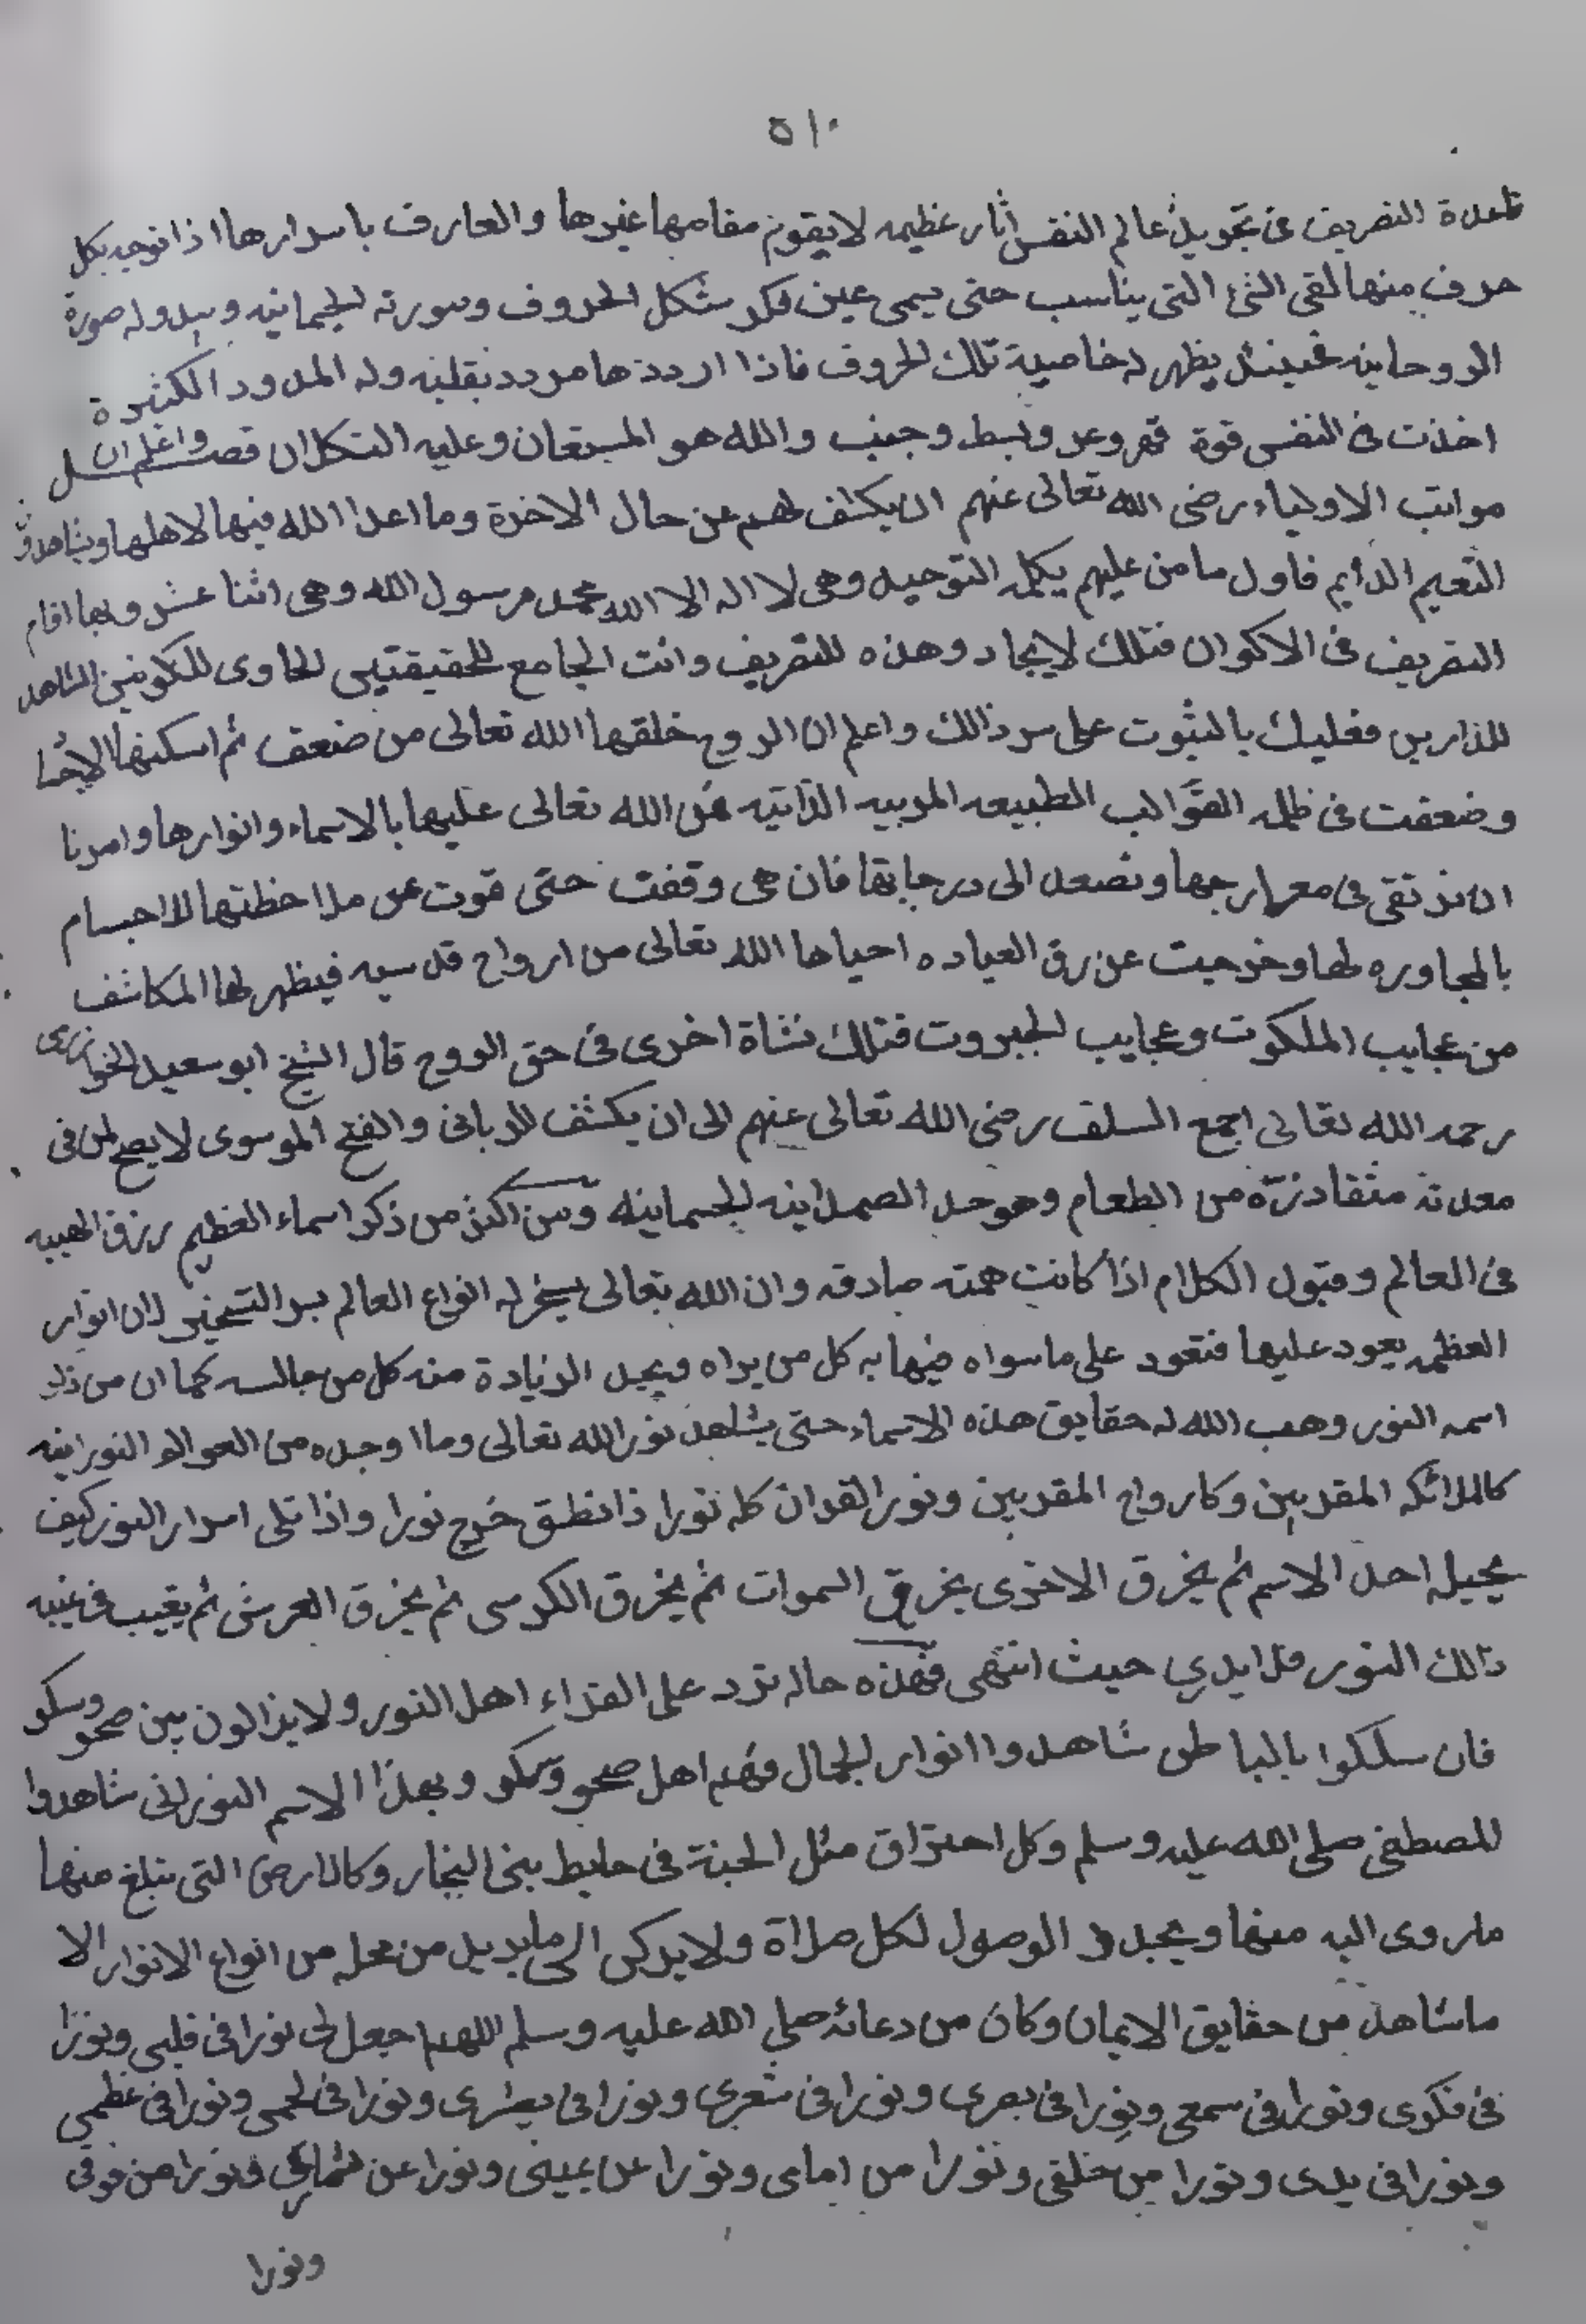 ٥١٠
قاعدة التصريف فى تحويل عالم النفس اثار عظيمه لا يقوم مقامها غيرها والعارف باسرارها اذا توجه بكل
حرف منها لقى الشئ التى يناسب حتى يمحى عين فكر شكل الحروف وصورته الجسمانيه ويبدو له صورة
الروحانيه فحينئذ يظهر له خاصية تلك الحروف فاذا اردد ها مردد بقلبه وله المدود الكثيرة
اخذت فى النفس قوة قهر وعز وبسط وجذب والله هو المستعان وعليه التكلان فصــــل واعلم ان
مراتب الاولياء رضى الله تعالى عنهم ان يكشف لهم عن حال الاخرة وما اعد الله فيها لاهلها ويشاهدون
النعيم الدايم فاول ما من عليهم بكلمه التوحيد وهى لا اله الا الله محمد رسول الله وهى اثنا عشر وبها اقام
التصريف فى الاكوان فتلك لايجاد وهذه للتصريف وانت الجامع للحقيقتيى الحاوى للكونين الشاهد
للدارين فعليك بالثبوت على سر ذالك واعلم ان الروح خلقها الله تعالى من ضعف ثم اسكنها
وضعفت فى ظلمه القوالب الطبيعه الذاتيه فمن الله تعالى عليها بالاسماء وانوارها وامرنا
ان نرتقى فى معارجها وتصعد الى درجاتها فان هى وقفت حتى قوت عن ملاحظتها للاجسام
بالمجاوره لها وخرجت عن رق العباده احياها الله تعالى من ارواح قدسيه فيظهر لها المكاشف
من عجايب الملكوت وعجايب الجبروت فتلك نشاة اخرى فى حق الروح قال الشيخ ابو سعيد الخوارزى
رحمه الله تعالى اجمع السلف رضى الله تعالى عنهم الى ان يكشف للربانى والفتح الموسوى لا يصح لمن فى
معدته مثقاد ذره من الطعام وهو حد الصمدانيه الجسمانيه ومن اكثر من ذكر اسماء العظيم رزق الهيبه
فى العالم وقبول الكلام اذا كانت همته صادقه وان الله تعالى يسخر له انواع العالم بسر التسخير لان انوار
العظمه يعود عليها فتعود على ما سواه فيها به كل من يراه ويجد الزيادة منه كل من جالسه كما ان من ذكر
اسمه النور وهب الله له حقايق هذه الاسماء حتى يشاهد نور الله تعالى وما اوجده من العوالم النورانيه
كالملائكه المقربين وكارواح المقربين ونور القران كله نورا ذا نطق خرج نورا واذا تلى اسرار النور كيف
يجيله احد الاسم ثم يخرق الاخرى يخرق السموات ثم يخرق الكرسى ثم يخرق العرش ثم يغيب فى غيبه
ذالك النور فلا يدرى حيث انتهى فهذه حاله ترد على القراء اهل النور ولا يزالون بين صحو وسكر
فان سلكوا بالباطن شاهدوا انوار الجمال فهم اهل صحو وسكر وبهذا الاسم النورانى شاهدوا
للمصطفى صلى الله عليه وسلم وكل احتراق مثل الجنة فى حايط بنى النجار وكالارض التى تبلغ منها
ما روى اليه منها ويجد الوصول لكل صلاة ولا يركى الى ما يريد من محله من انواع الانوار الا
ما شاهد من حقايق الايمان وكان من دعائه صلى الله عليه وسلم اللهم اجعل لى نورا فى قلبى ونورا
فى فكرى ونورا فى سمعى ونورا فى بصرى ونورا فى شعرى ونورا فى بشرى ونورا فى لحمى ونورا فى عظمى
ونورا فى يدى ونورا من خلفى ونورا من امامى ونورا عن يمينى ونورا عن شمالى ونورا من فوقى
ونورا